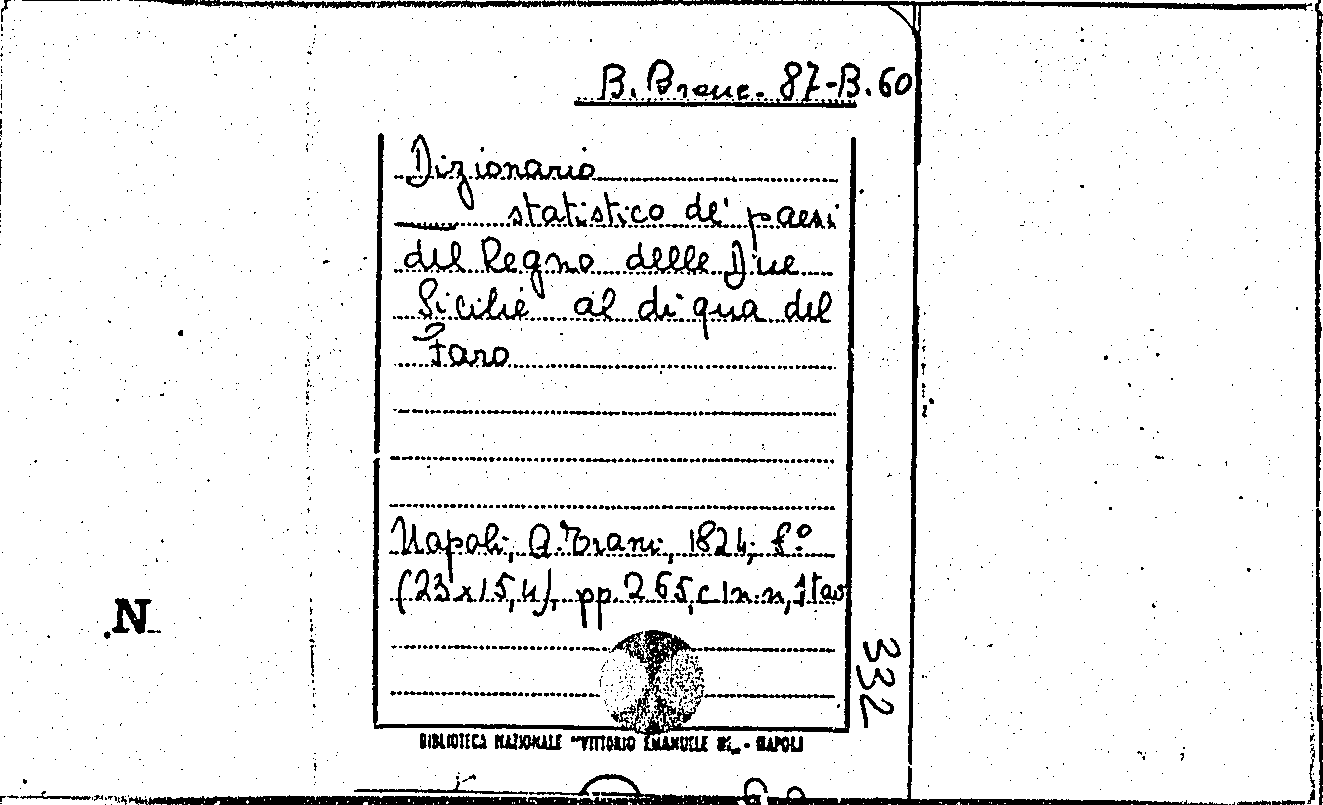 B. Branc. 87-B.60
Dizionario
statistico de' paesi
del Regno delle Due
Sicilie al di qua del
Faro
Napoli, A. Trani, 1824; f.°
(23x15,4), pp. 265, c 1 n.n, 1 tav
N
332
BIBLIOTECA NAZIONALE "VITTORIO EMANUELE III„ - NAPOLI